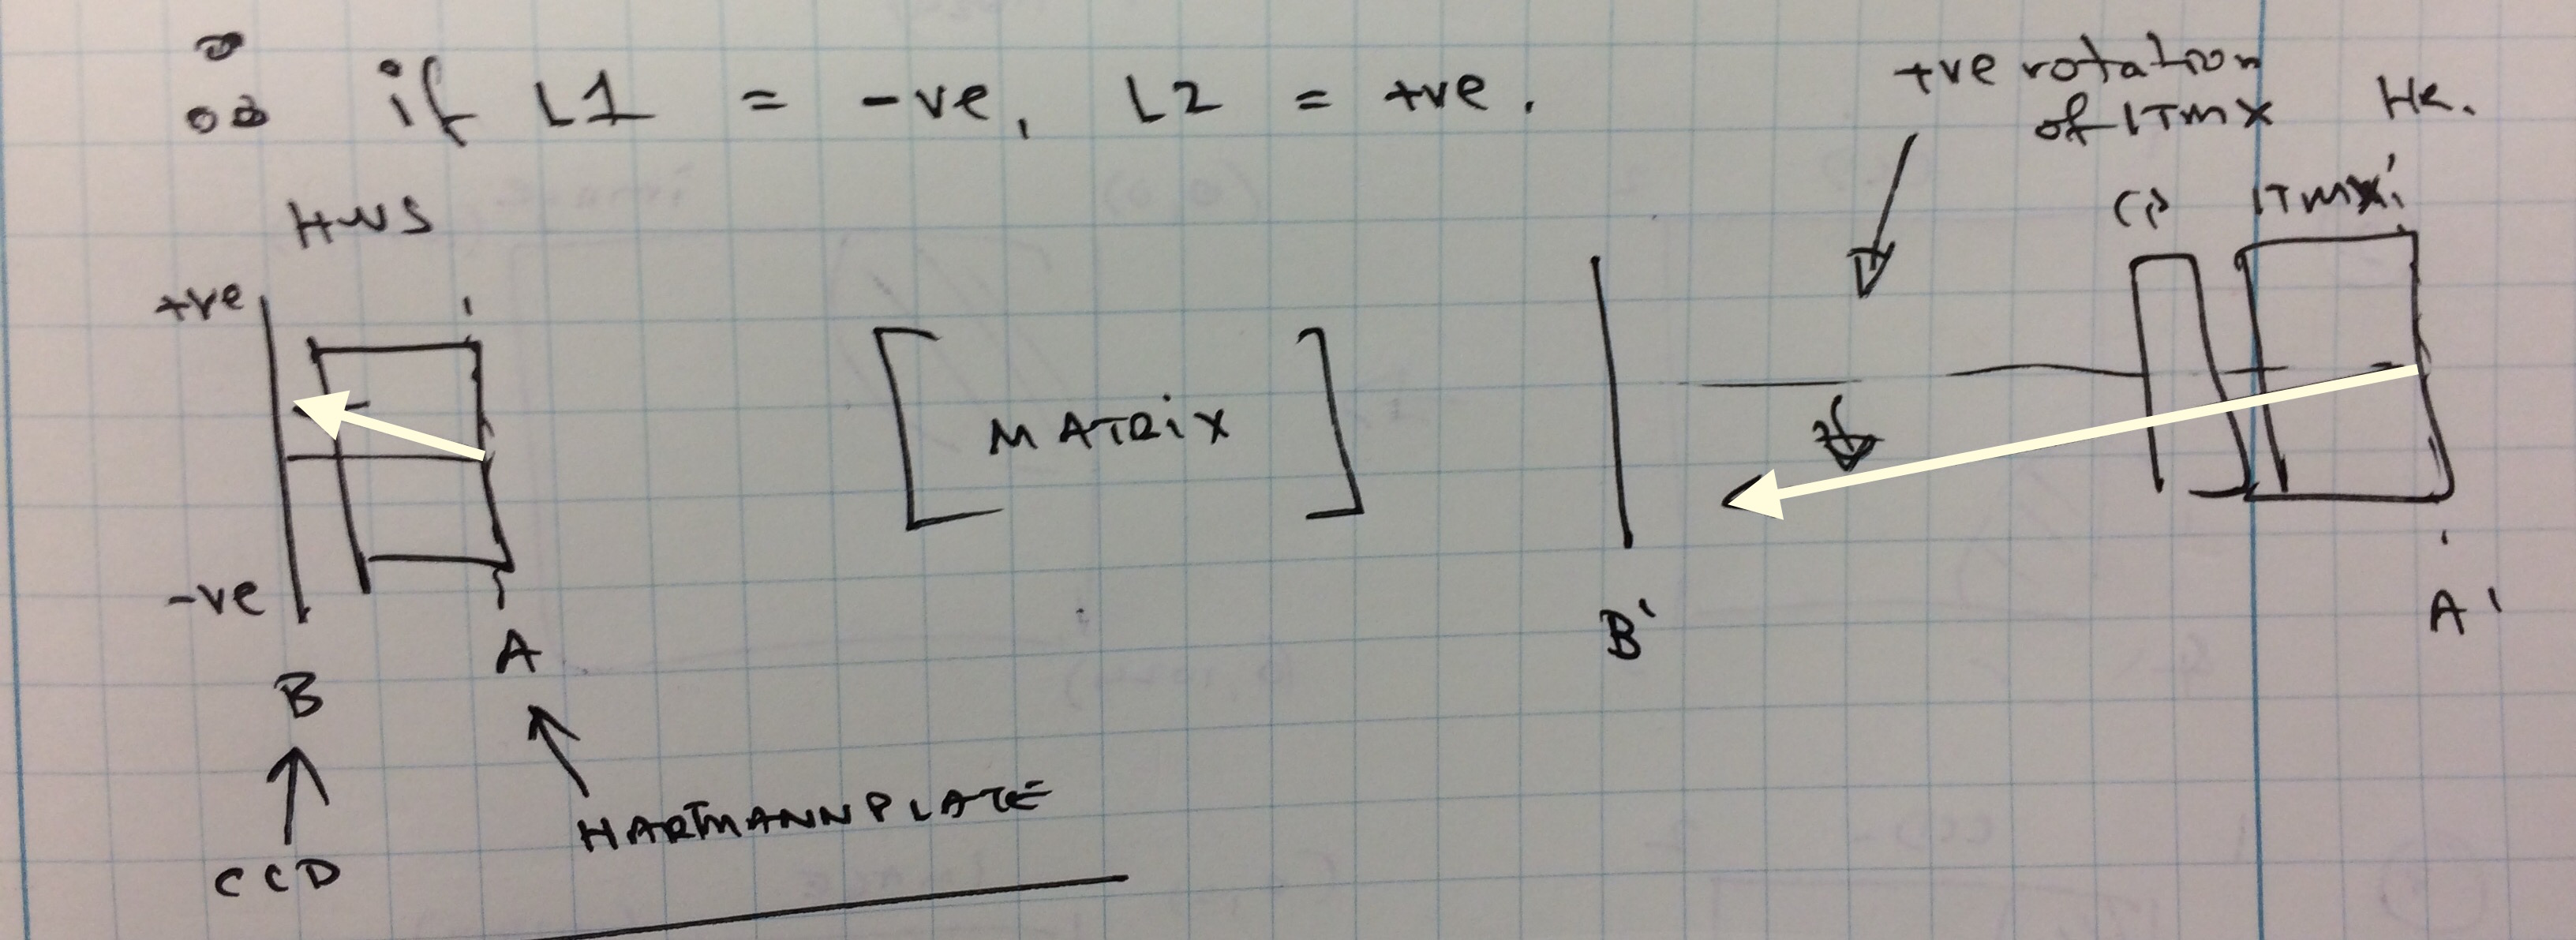 ∴ if L1 = -ve, L2 = +ve.
+ve rotation
of ITMX
HR.
HWS
CP
ITMX
+ve
MATRIX
-ve
A
B'
A'
B
HARTMANN PLATE
CCD